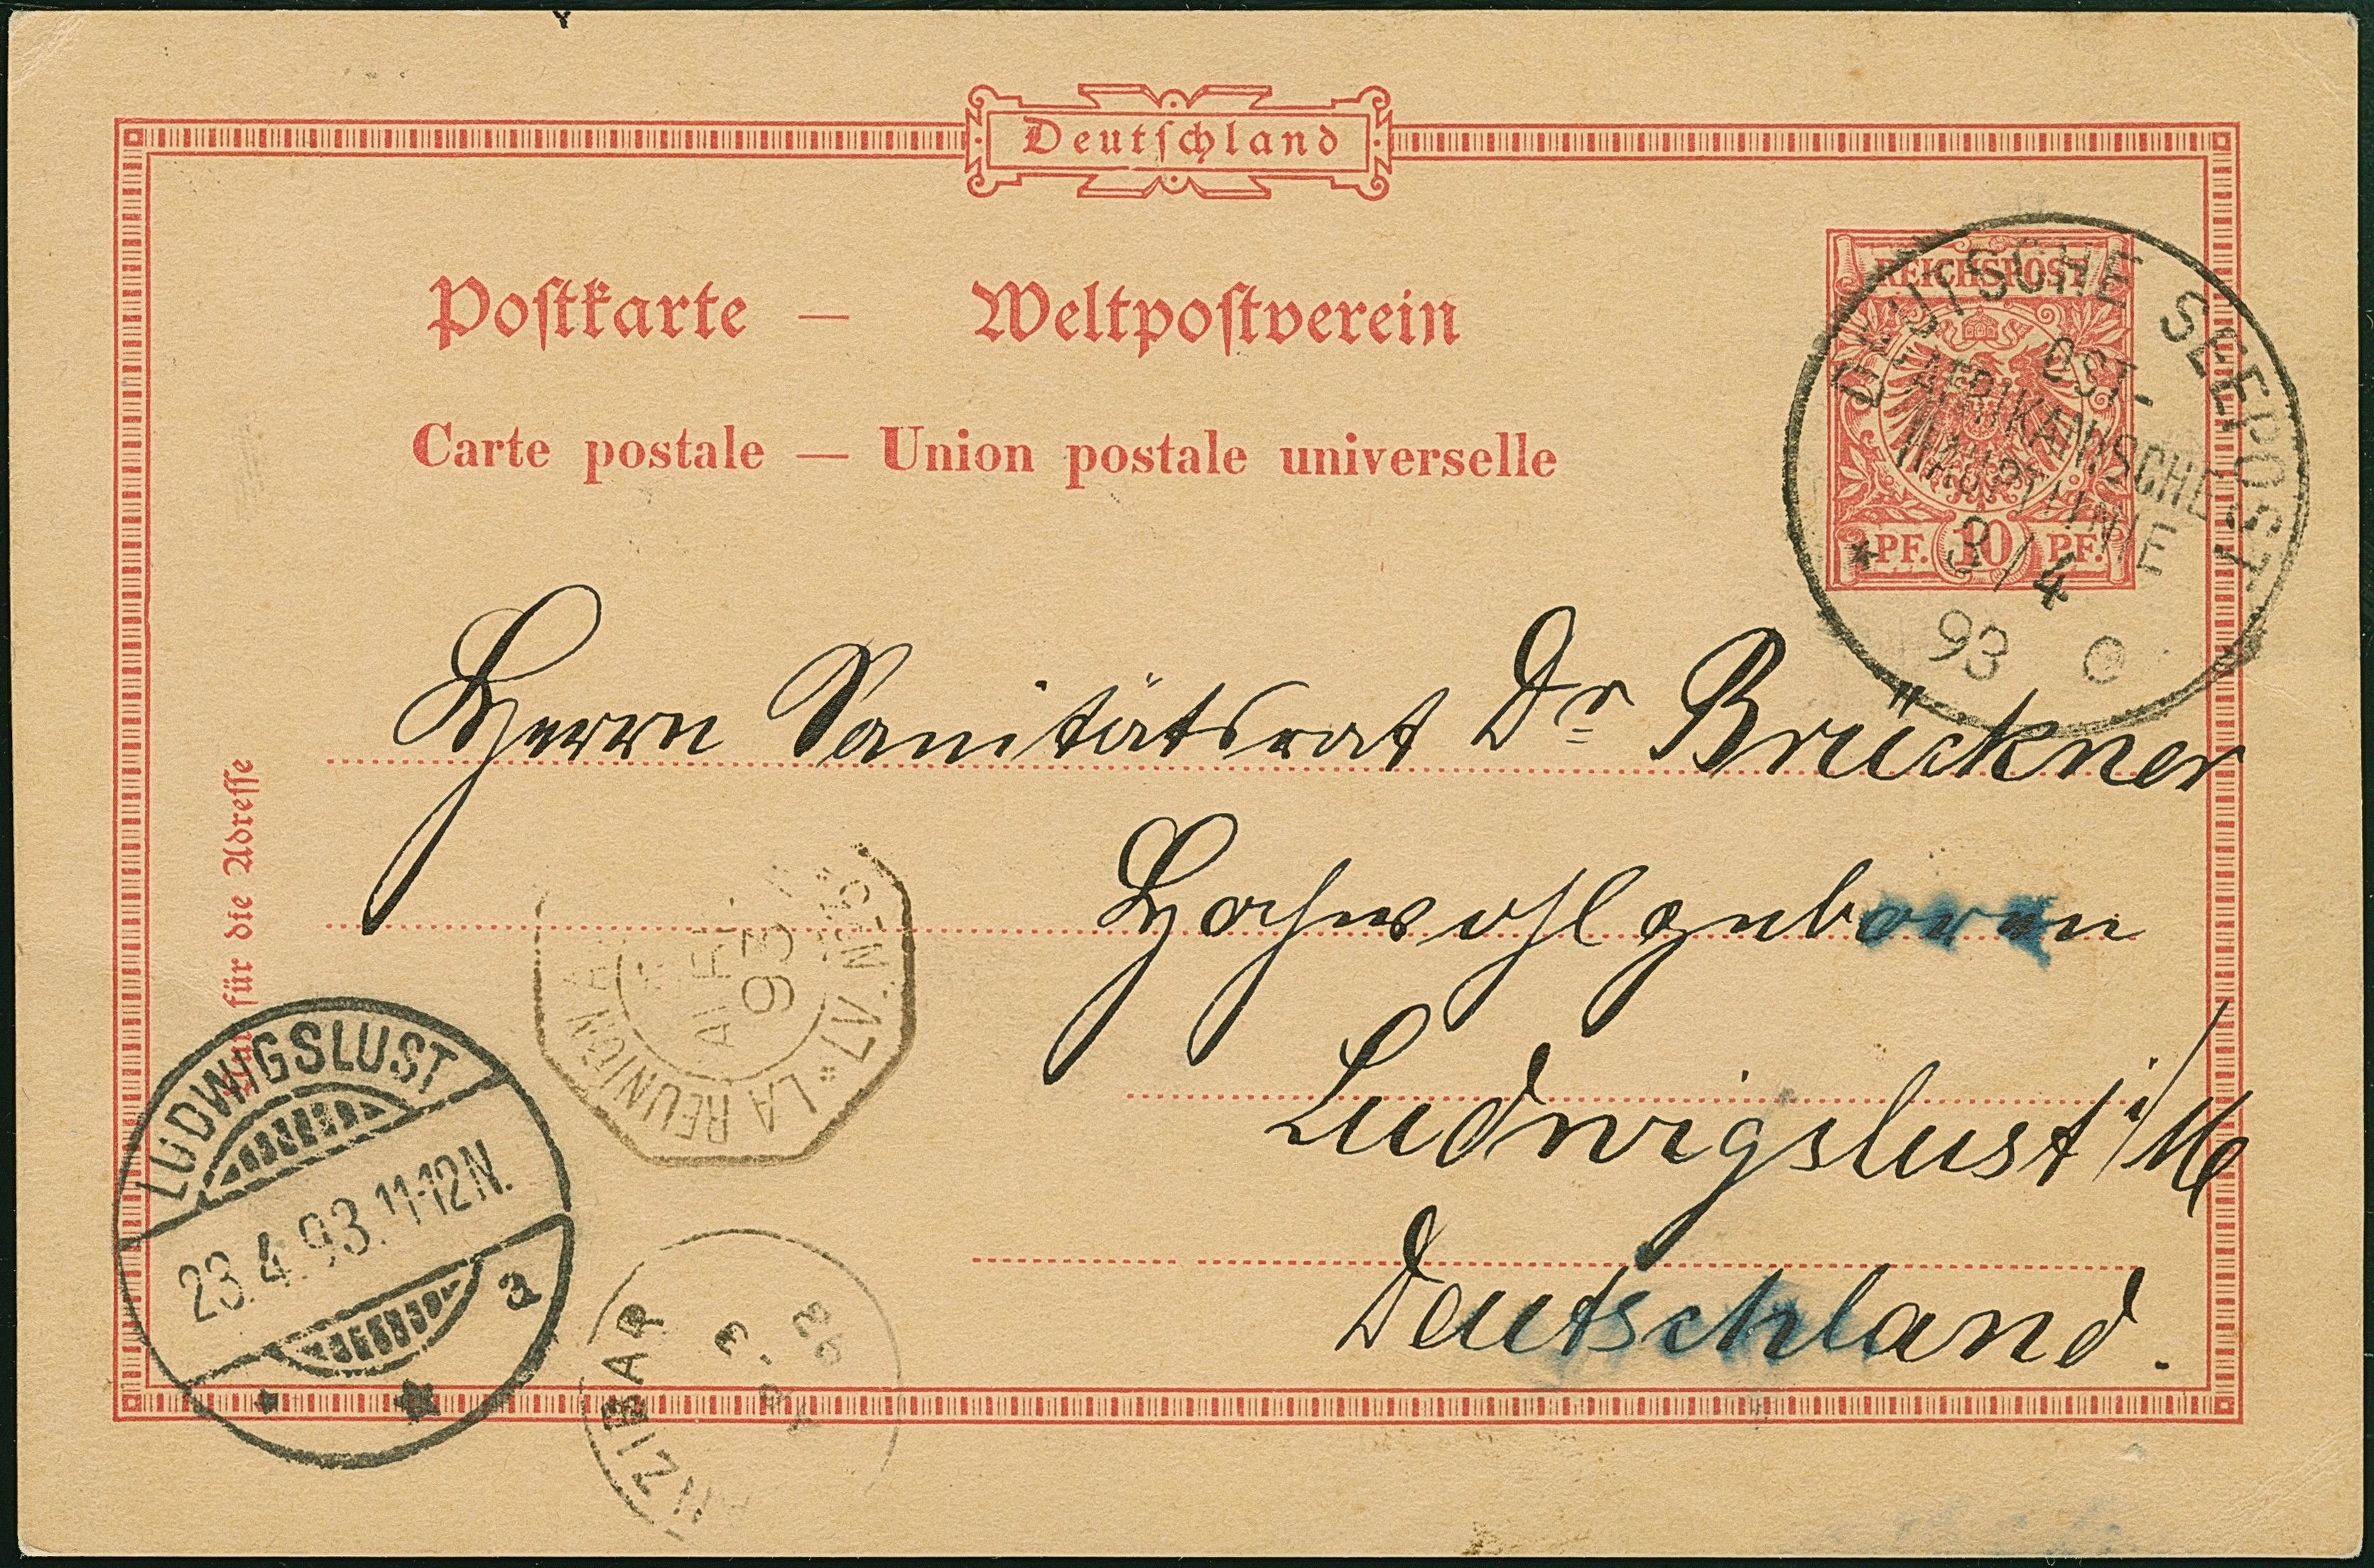 Deutschland
Postkarte — Weltpostverein
Carte postale — Union postale universelle
REICHSPOST
PF. 10 PF.
DEUTSCHE SEEPOST
OST-
AFRIKANISCHE
HAUPTLINIE
3/4
93 e
Herrn Sanitätsrat Dr Brückner
Hochwohlgeboren
Ludwigslust i/M
Deutschland.
Nur für die Adresse
LA REUNION A LV. Nº
AVRIL
93
LUDWIGSLUST
23.4.93.11-12N.
a
ZANZIBAR
3
93